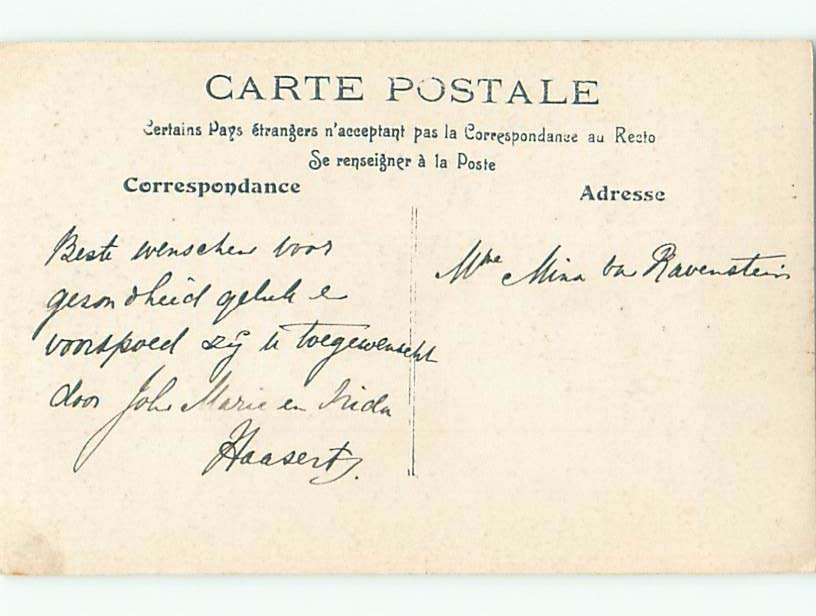 CARTE POSTALE
Certains Pays étrangers n'acceptent pas la Correspondance au Recto
Se renseigner à la Poste
Correspondance
Adresse
Beste wenschen voor
gezondheid geluk e
voorspoed zij u toegewenscht
door John Marie en Frida
Haasert
Mme Mina va Ravenstein